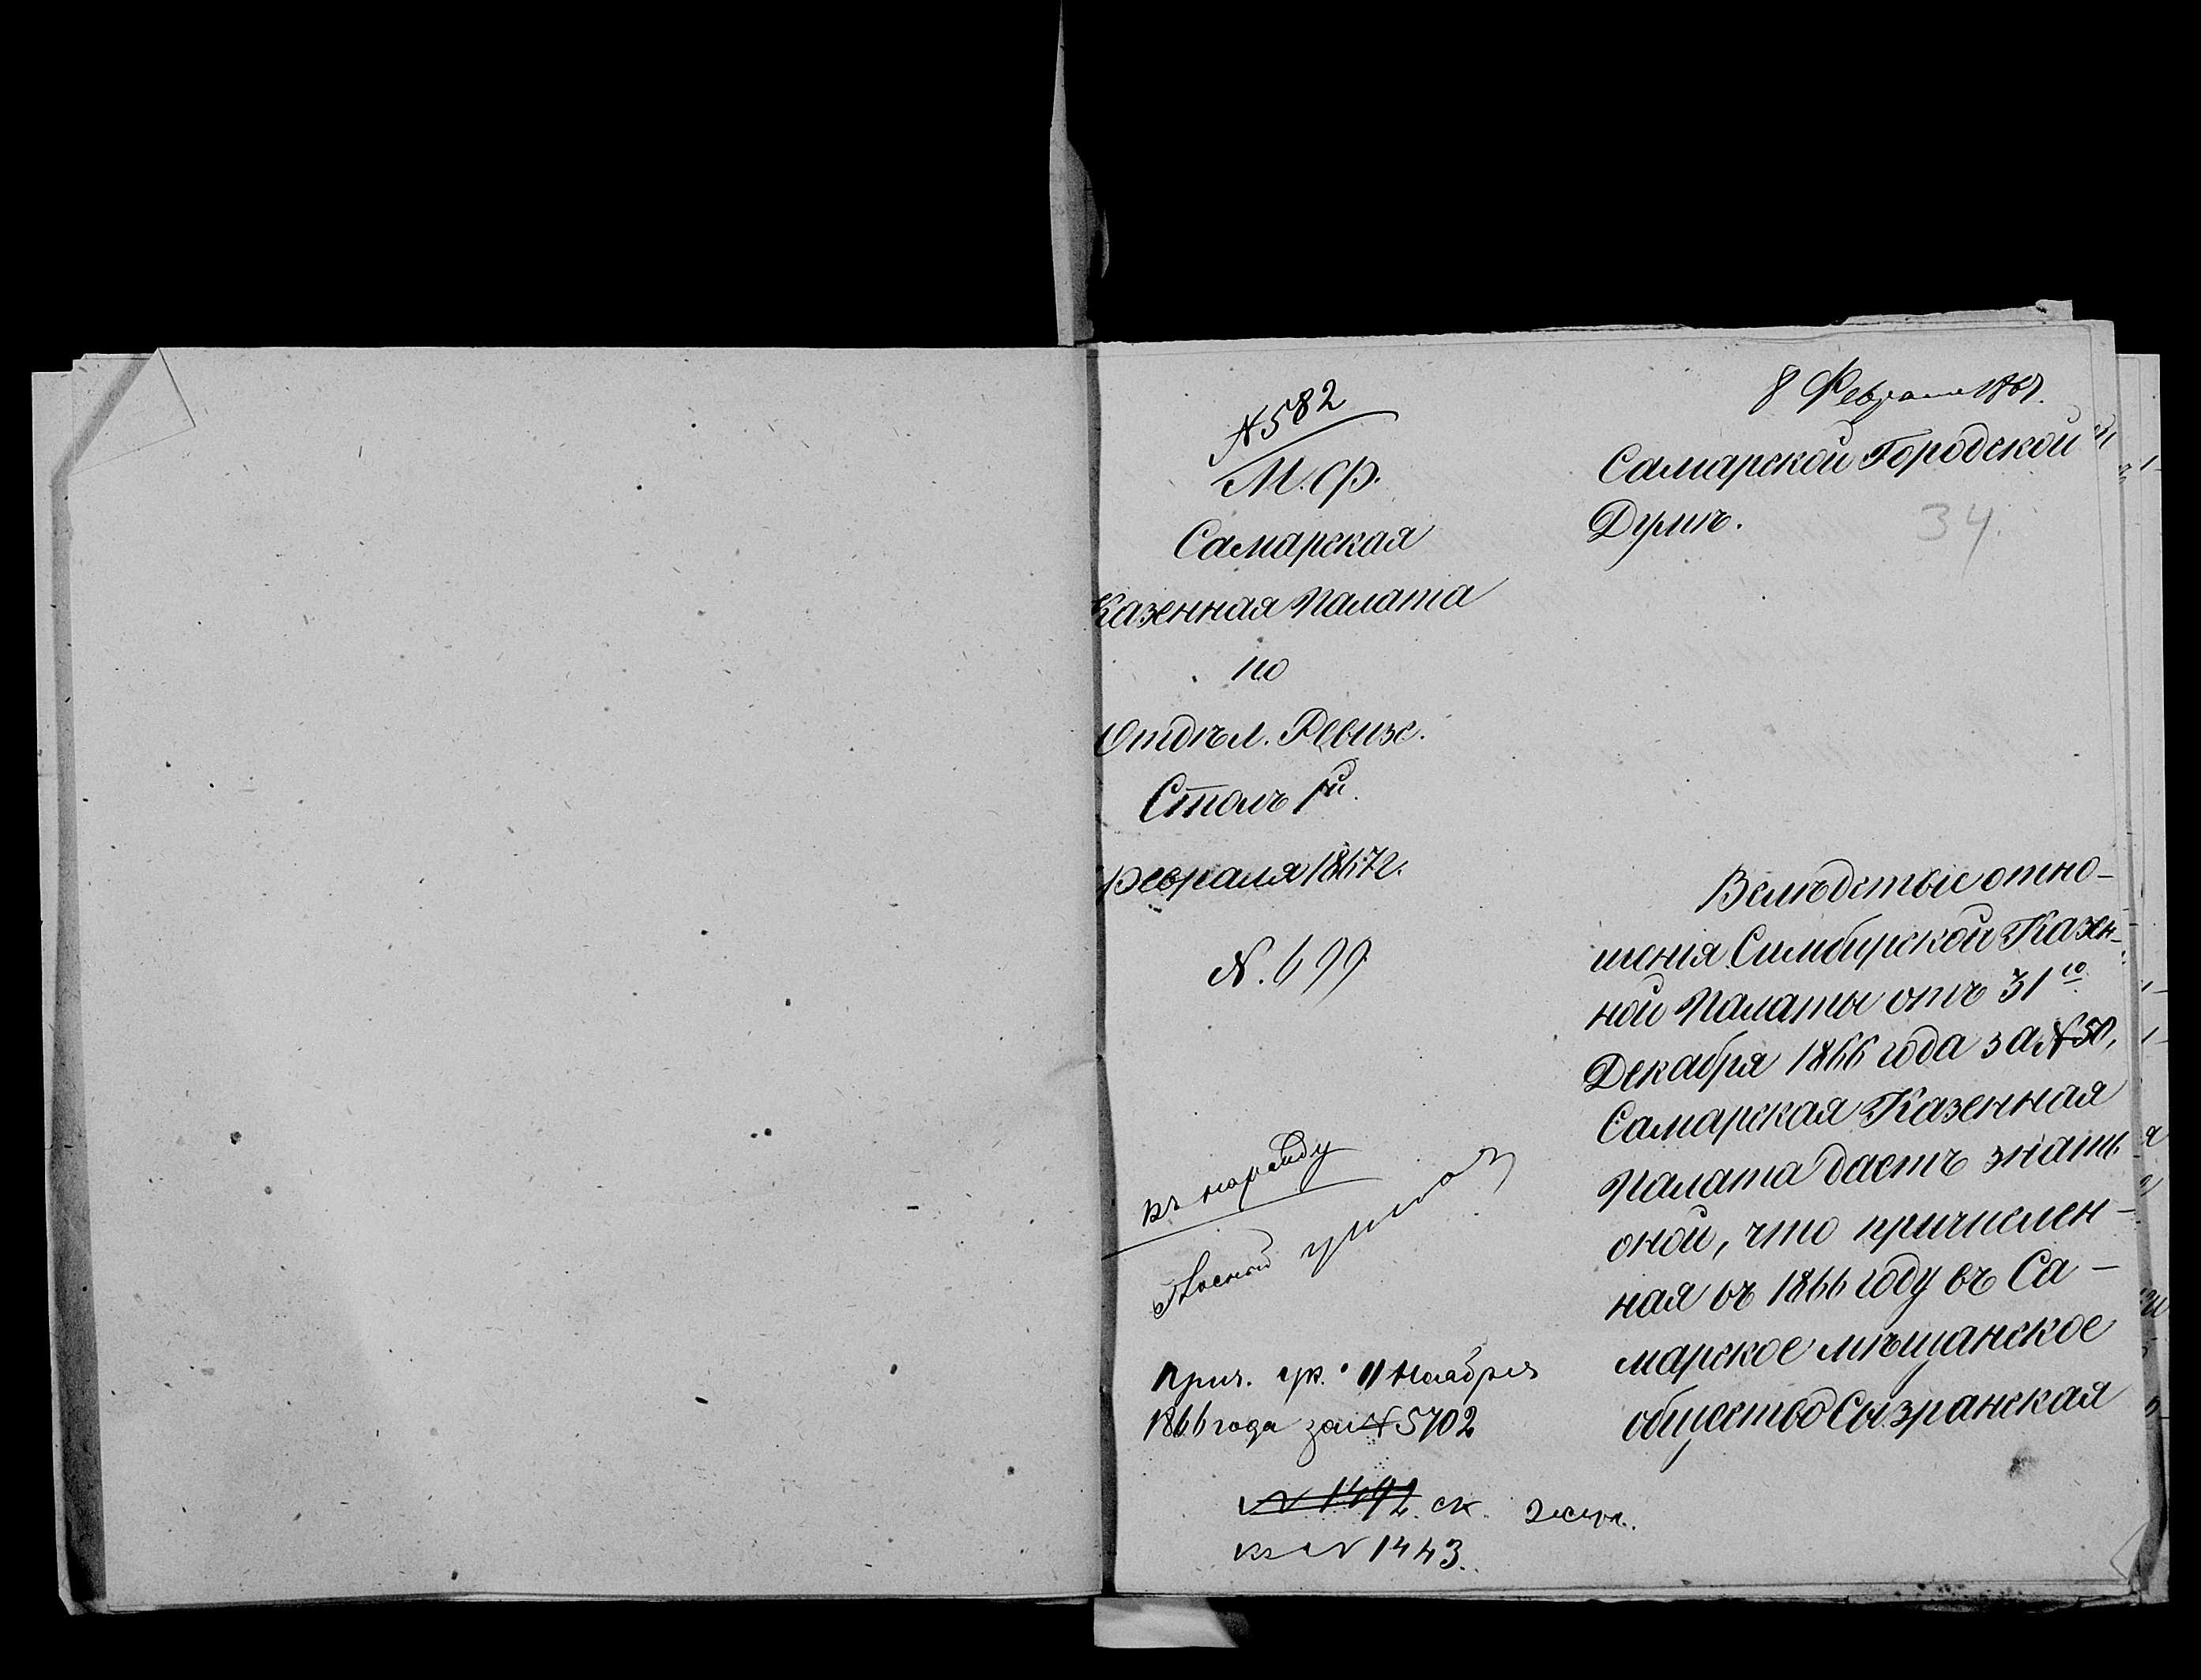 № 582
М. Ф.
Самарская
Казенная Палата
по
Отдѣл. Ревизс.
Столъ 1й.
Февраля 1867 г.
№. 699
къ наряду
Прич. ук. 11 Ноября
1866 года за № 5702
№ 1492. ск. 2 жур.
къ № 1443.
8 Февраля 1867.
Самарской Городской
Думѣ.
34.
Вслѣдствіе отно-
шенія Симбирской Казен-
ной Палаты отъ 31го
Декабря 1866 года за №
Самарская Казенная
Палата даетъ знать
оной, что причислен-
ная въ 1866 году въ Са-
марское мѣщанское
общество Сызранская